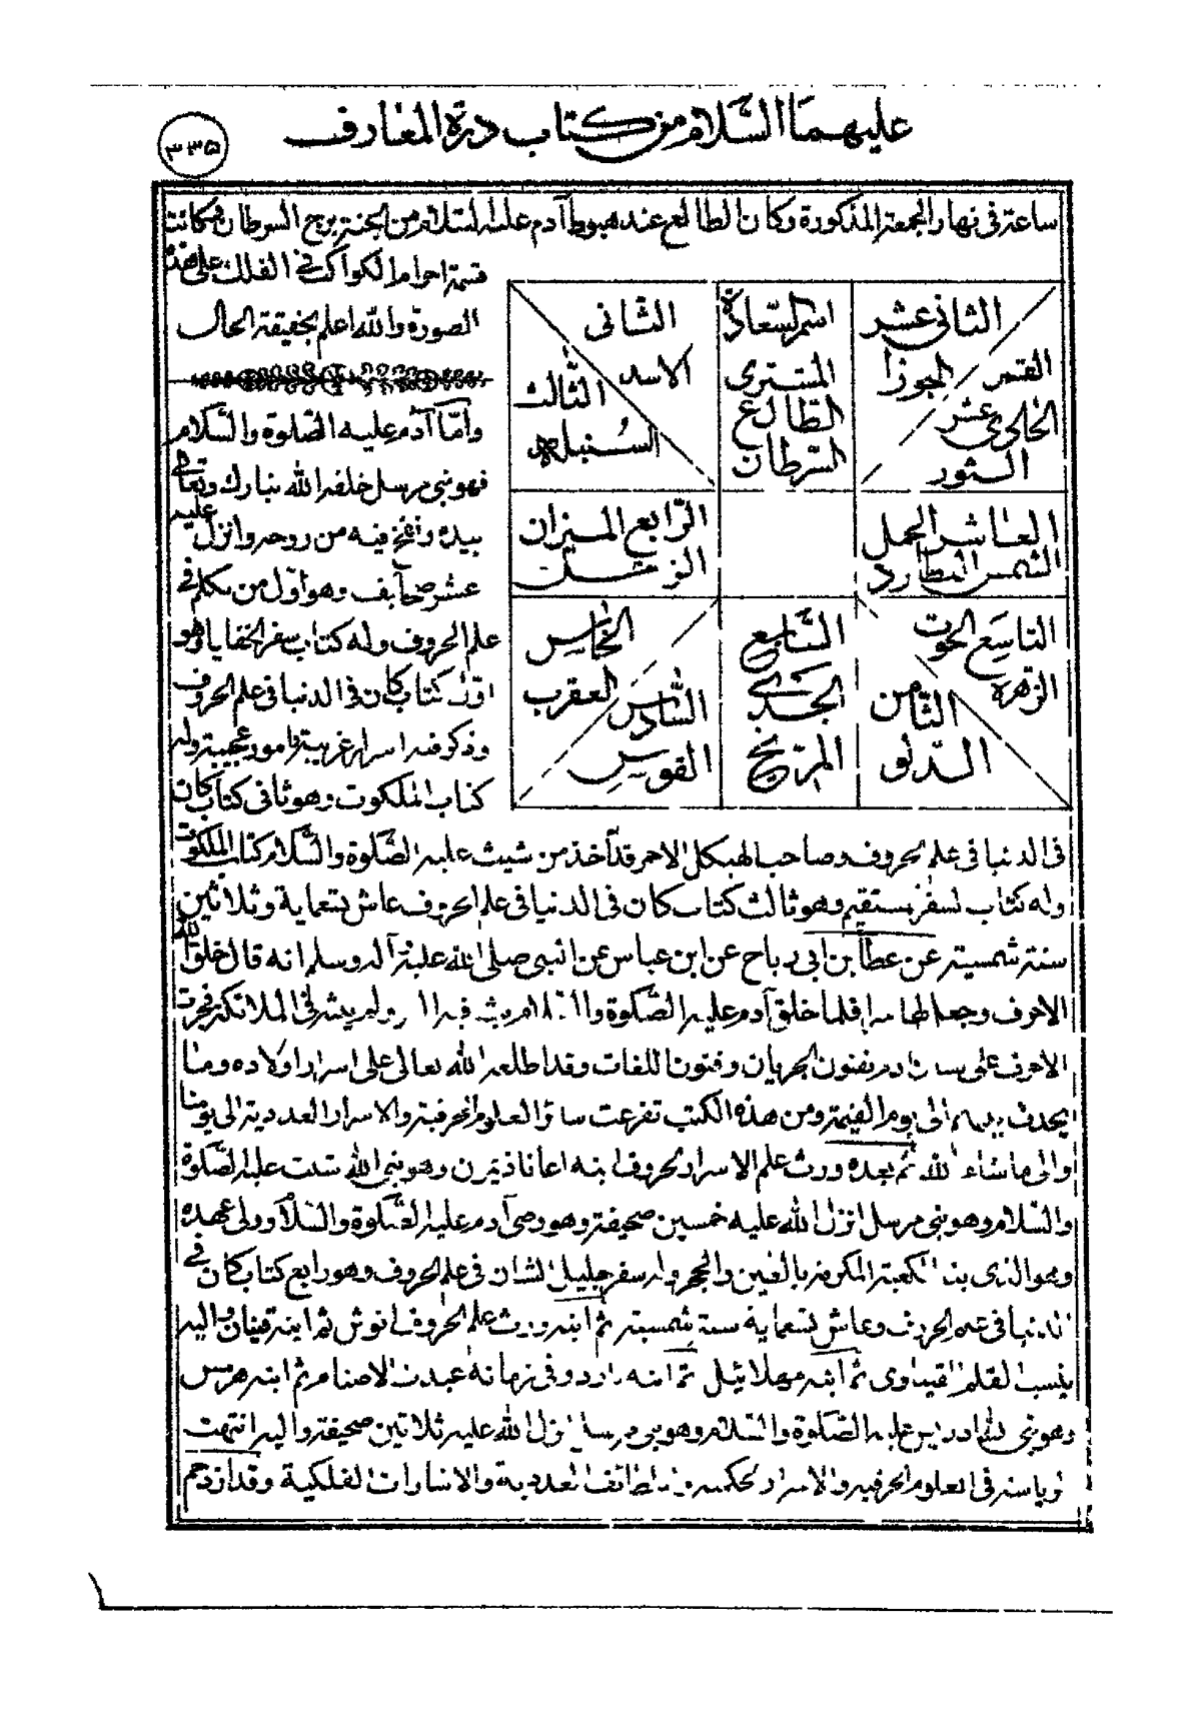 عليهما السلام من كتاب درة المعارف
٣٣٥
ساعة فى نهار الجمعة المذكورة وكان الطالع عند هبوط آدم عليه السلام من الجنة برج السرطان فكانت
قسمة اجرام الكواكب فى الفلك على هذه
الصورة والله اعلم بحقيقة الحال
الثانى عشر
القمر الجوزا
الحادى عشر
الثور
اسم السعادة
المشترى
الطالع
السرطان
الثانى
الاسد
الثالث
السنبله
العاشر الحمل
الشمس العطارد
الرابع الميزان
التاسع الحوت
الزهرة
الثامن
الدلو
السابع
الجدى
المريخ
الخامس
العقرب
السادس
القوس
وامّا آدم عليه الصلوة والسلام
فهو نبى مرسل خلقه الله تبارك وتعالى
بيده ونفخ فيه من روحه وانزل عليه
عشر صحايف وهو اول من تكلم فى
علم الحروف وله كتاب سفر الخفايا وهو
اول كتاب كان فى الدنيا فى علم الحروف
وذكر فيه اسرار غريبة وامور عجيبة وله
كتاب الملكوت وهو ثانى كتاب كان
فى الدنيا فى علم الحروف وصاحب الهيكل الاحمر قد آخذ من شيث عليه الصلوة والسلام كتاب الملكوت
وله كتاب لسفر مستقيم وهو ثالث كتاب كان فى الدنيا فى علم الحروف عاش تسعماية وثلاثين
سنة شمسية عن عطا بن ابى رباح عن ابن عباس عن النبى صلى الله عليه وآله وسلم انه قال خلق الله
الاحرف وجعل لها فلما خلق آدم عليه الصلوة ولم فى الملائكة فجرت
الاحرف على آدم بفنون الجريان وفنون اللغات وقد اطلعه الله تعالى على اسرار اولاده وما
يحدث بينهم الى يوم القيمة ومن هذه الكتب تفرعت سائر العلوم الحرفية والاسرار العددية الى يومنا
والى ما شاء الله ثم بعده ورث علم الاسرار الحروف ابنه وهو نبى الله شيث عليه الصلوة
والسلام وهو نبى مرسل انزل الله عليه خمسين صحيفة وهو وصى آدم عليه الصلوة والسلام وولى عهده
وهو الذى بنا الكعبة المكرمة بالطين والحجر وله سفر جليل الشان فى علم الحروف وهو رابع كتاب كان فى
الدنيا فى علم الحروف وعاش تسعماية سنة شمسية ثم ابنه ورث علم الحروف انوش ثم ابنه قينان واليه
ينسب القلم القيناوى ثم ابنه مهلائيل ثم ابنه يارد وفى زمانه عبدت الاصنام ثم ابنه هرمس
وهو نبى الله ادريس عليه الصلوة والسلام وهو نبى مرسل انزل الله عليه ثلاثين صحيفة واليه انتهت
الرياسة فى العلوم الحرفية والاسرار الحكمية واللطائف العددية والاشارات الفلكية وقد ازدحم